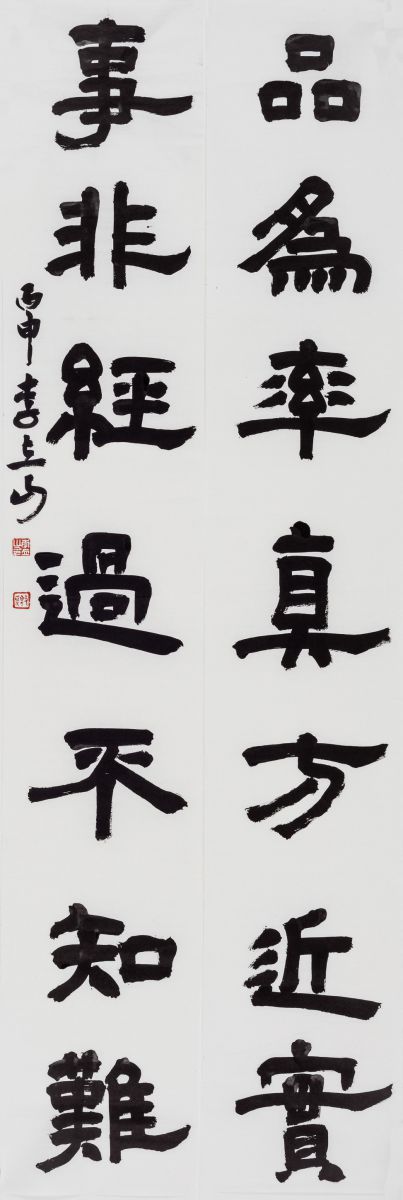 品為率真方近實
事非經過不知難
丙申李立山